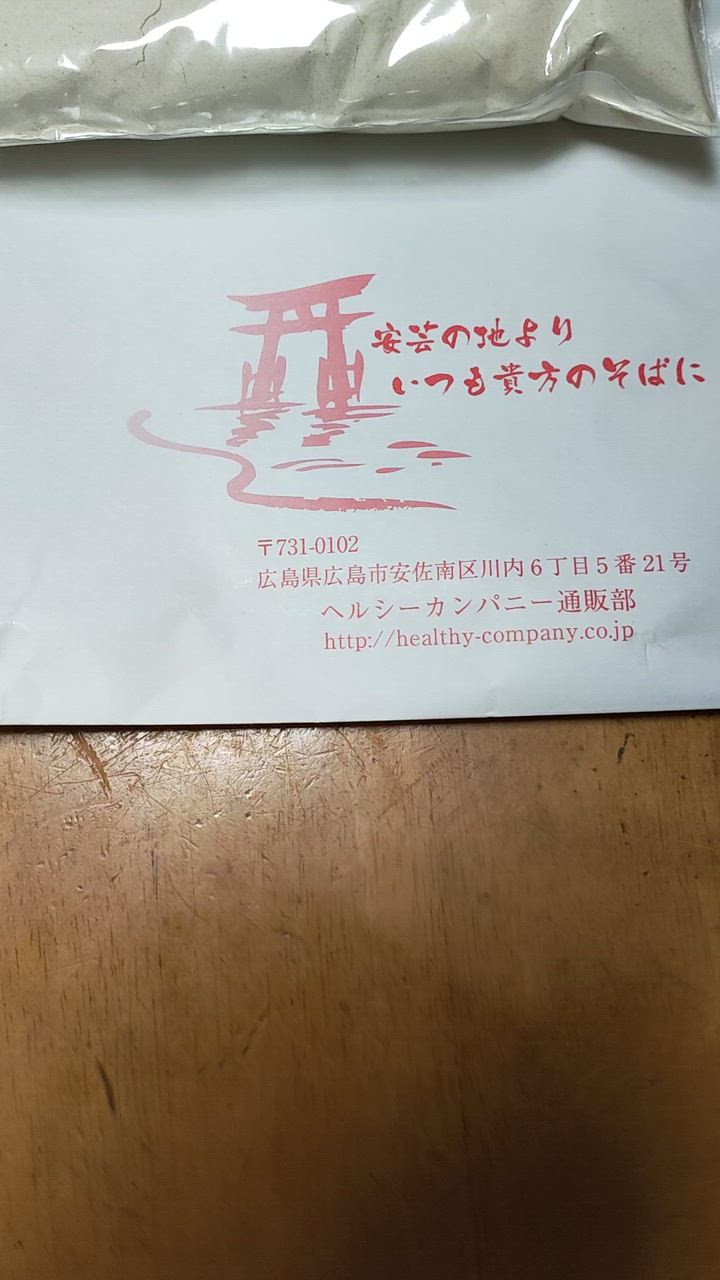 安芸の地より
いつも貴方のそばに
〒731-0102
広島県広島市安佐南区川内6丁目5番21号
ヘルシーカンパニー通販部
http://healthy-company.co.jp